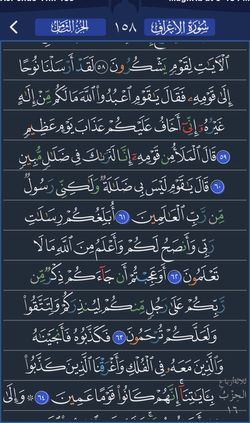 سُورَةُ الأَعْرَافِ ١٥٨ الجُزْءُ الثَّامِنُ
الْآيَاتِ لِقَوْمٍ يَشْكُرُونَ ٥٨ لَقَدْ أَرْسَلْنَا نُوحًا
إِلَىٰ قَوْمِهِ فَقَالَ يَاقَوْمِ اعْبُدُوا اللَّهَ مَا لَكُم مِّنْ إِلَٰهٍ
غَيْرُهُ إِنِّي أَخَافُ عَلَيْكُمْ عَذَابَ يَوْمٍ عَظِيمٍ
٥٩ قَالَ الْمَلَأُ مِن قَوْمِهِ إِنَّا لَنَرَاكَ فِي ضَلَالٍ مُّبِينٍ
٦٠ قَالَ يَاقَوْمِ لَيْسَ بِي ضَلَالَةٌ وَلَٰكِنِّي رَسُولٌ
مِّن رَّبِّ الْعَالَمِينَ ٦١ أُبَلِّغُكُمْ رِسَالَاتِ
رَبِّي وَأَنصَحُ لَكُمْ وَأَعْلَمُ مِنَ اللَّهِ مَا لَا
تَعْلَمُونَ ٦٢ أَوَعَجِبْتُمْ أَن جَاءَكُمْ ذِكْرٌ مِّن
رَّبِّكُمْ عَلَىٰ رَجُلٍ مِّنكُمْ لِيُنذِرَكُمْ وَلِتَتَّقُوا
وَلَعَلَّكُمْ تُرْحَمُونَ ٦٣ فَكَذَّبُوهُ فَأَنجَيْنَاهُ
وَالَّذِينَ مَعَهُ فِي الْفُلْكِ وَأَغْرَقْنَا الَّذِينَ كَذَّبُوا
بِآيَاتِنَا إِنَّهُمْ كَانُوا قَوْمًا عَمِينَ ٦٤ ۞ وَإِلَىٰ
ثلاثة أرباع
الحزب
١٦